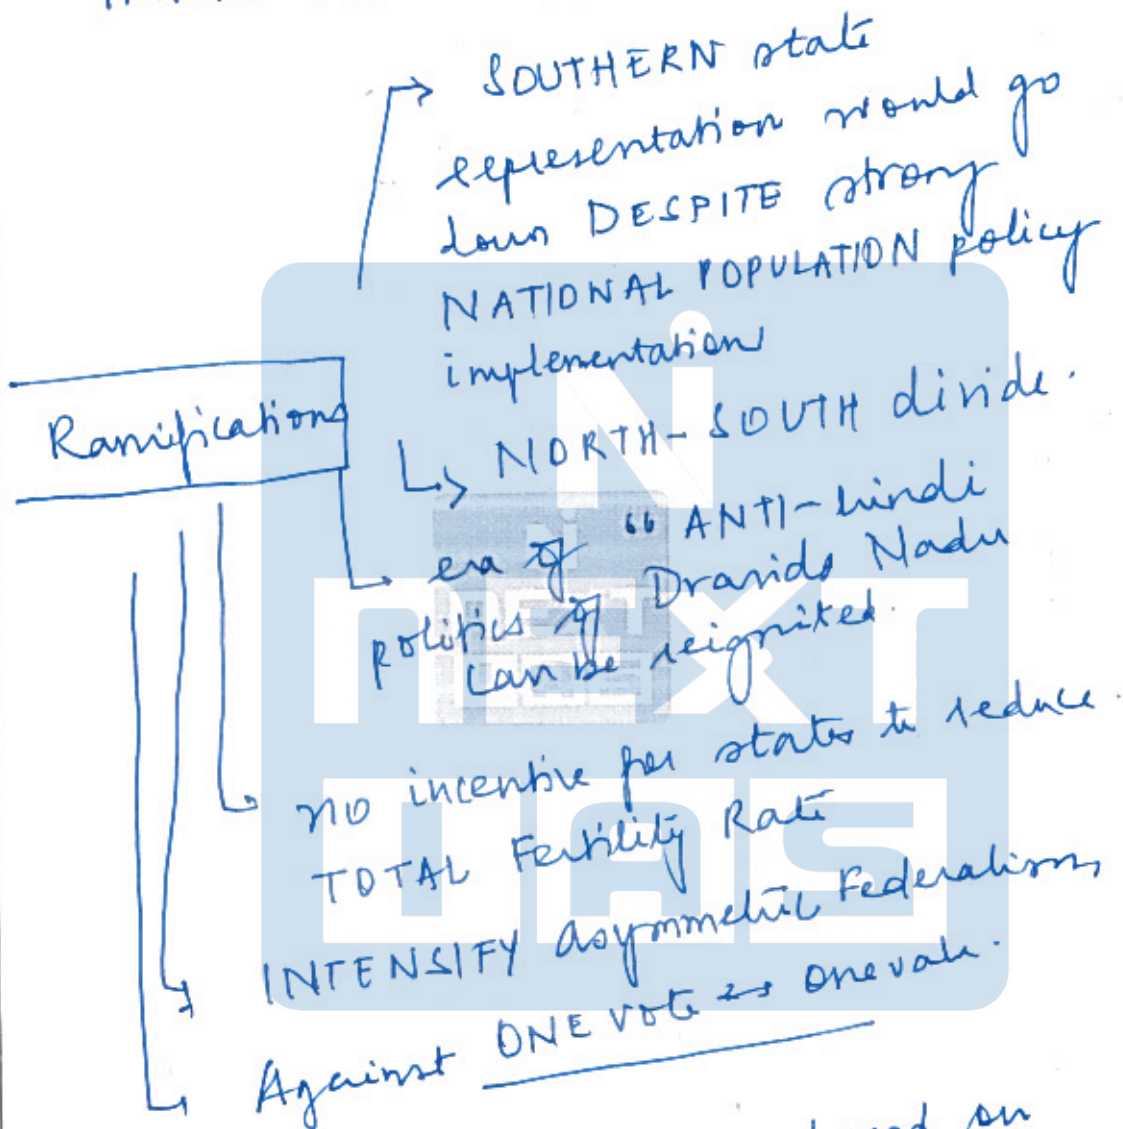 SOUTHERN state
representation would go
down DESPITE strong
NATIONAL POPULATION policy
implementation
Ramifications
NORTH-SOUTH divide.
era of "ANTI-hindi
politics of Dravida Nadu
can be reignited.
no incentive for states to reduce.
TOTAL Fertility Rate
INTENSIFY asymmetric Federalism,
Against ONE vote one value.
on
N
NEXT
IAS